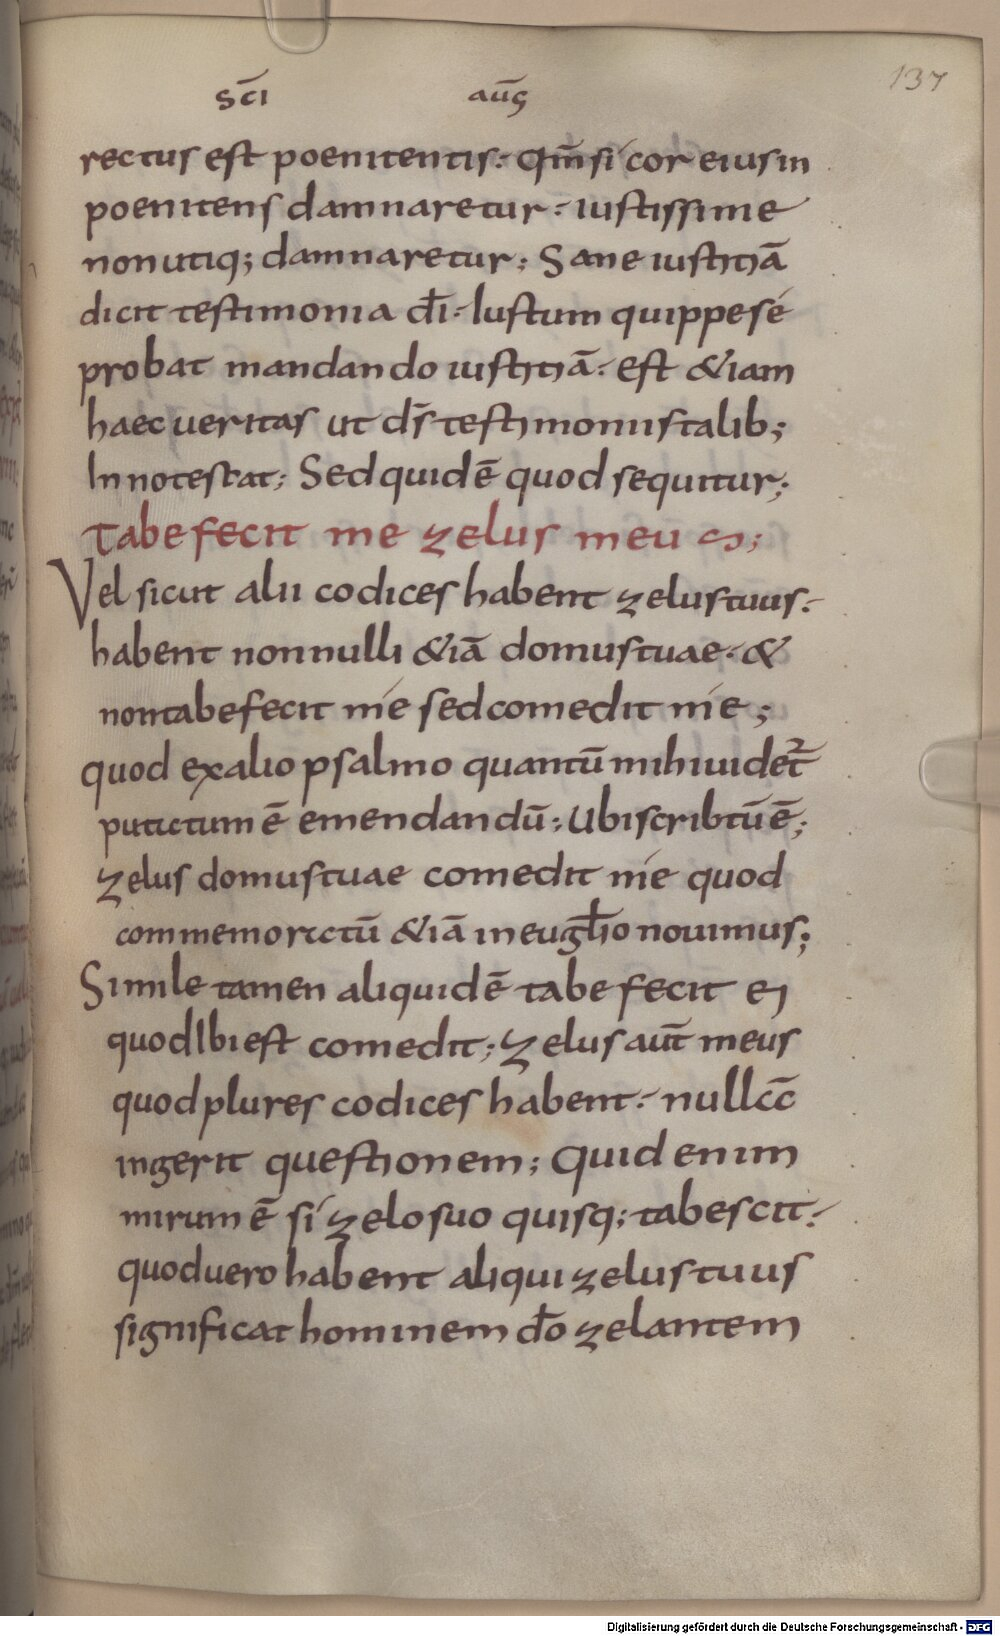 137
sc̄i aūg
rectus est poenitentis:· Qm̄ si cor eius in
poenitens damnaretur:· iustissime
non utiq; damnaretur; Sane iustitiā
dicit testimonia dī:· Iustum quippe sé
probat mandando iustitiā:· est &iam
haec ueritas ut dr̄s testimoniis talib;
Innotescat; Sed quid ē quod sequitur;
Tabefecit me zelus meus;
Vel sicut alii codices habent zelus tuus:·
habent nonnulli &iā domus tuae·&
non tabefecit mé sed comedit mé;
quod ex alio psalmo quantū mihi uidet̄²
putatum ē emendandū; Ubi scribtū ē;
zelus domus tuae comedit mé quod
commemoratū &iā in eugłio nouimus;
Simile tamen aliquid ē tabefecit ei
quod Ibi est comedit; Zelus aut̄ meus
quod plures codices habent:· nullā
ingerit questionem; Quid enim
mirum ē sí zelo suo quisq; tabescit:·
quod uero habent aliqui zelus tuus
significat hominem dō zelantem
Digitalisierung gefördert durch die Deutsche Forschungsgemeinschaft - DFG